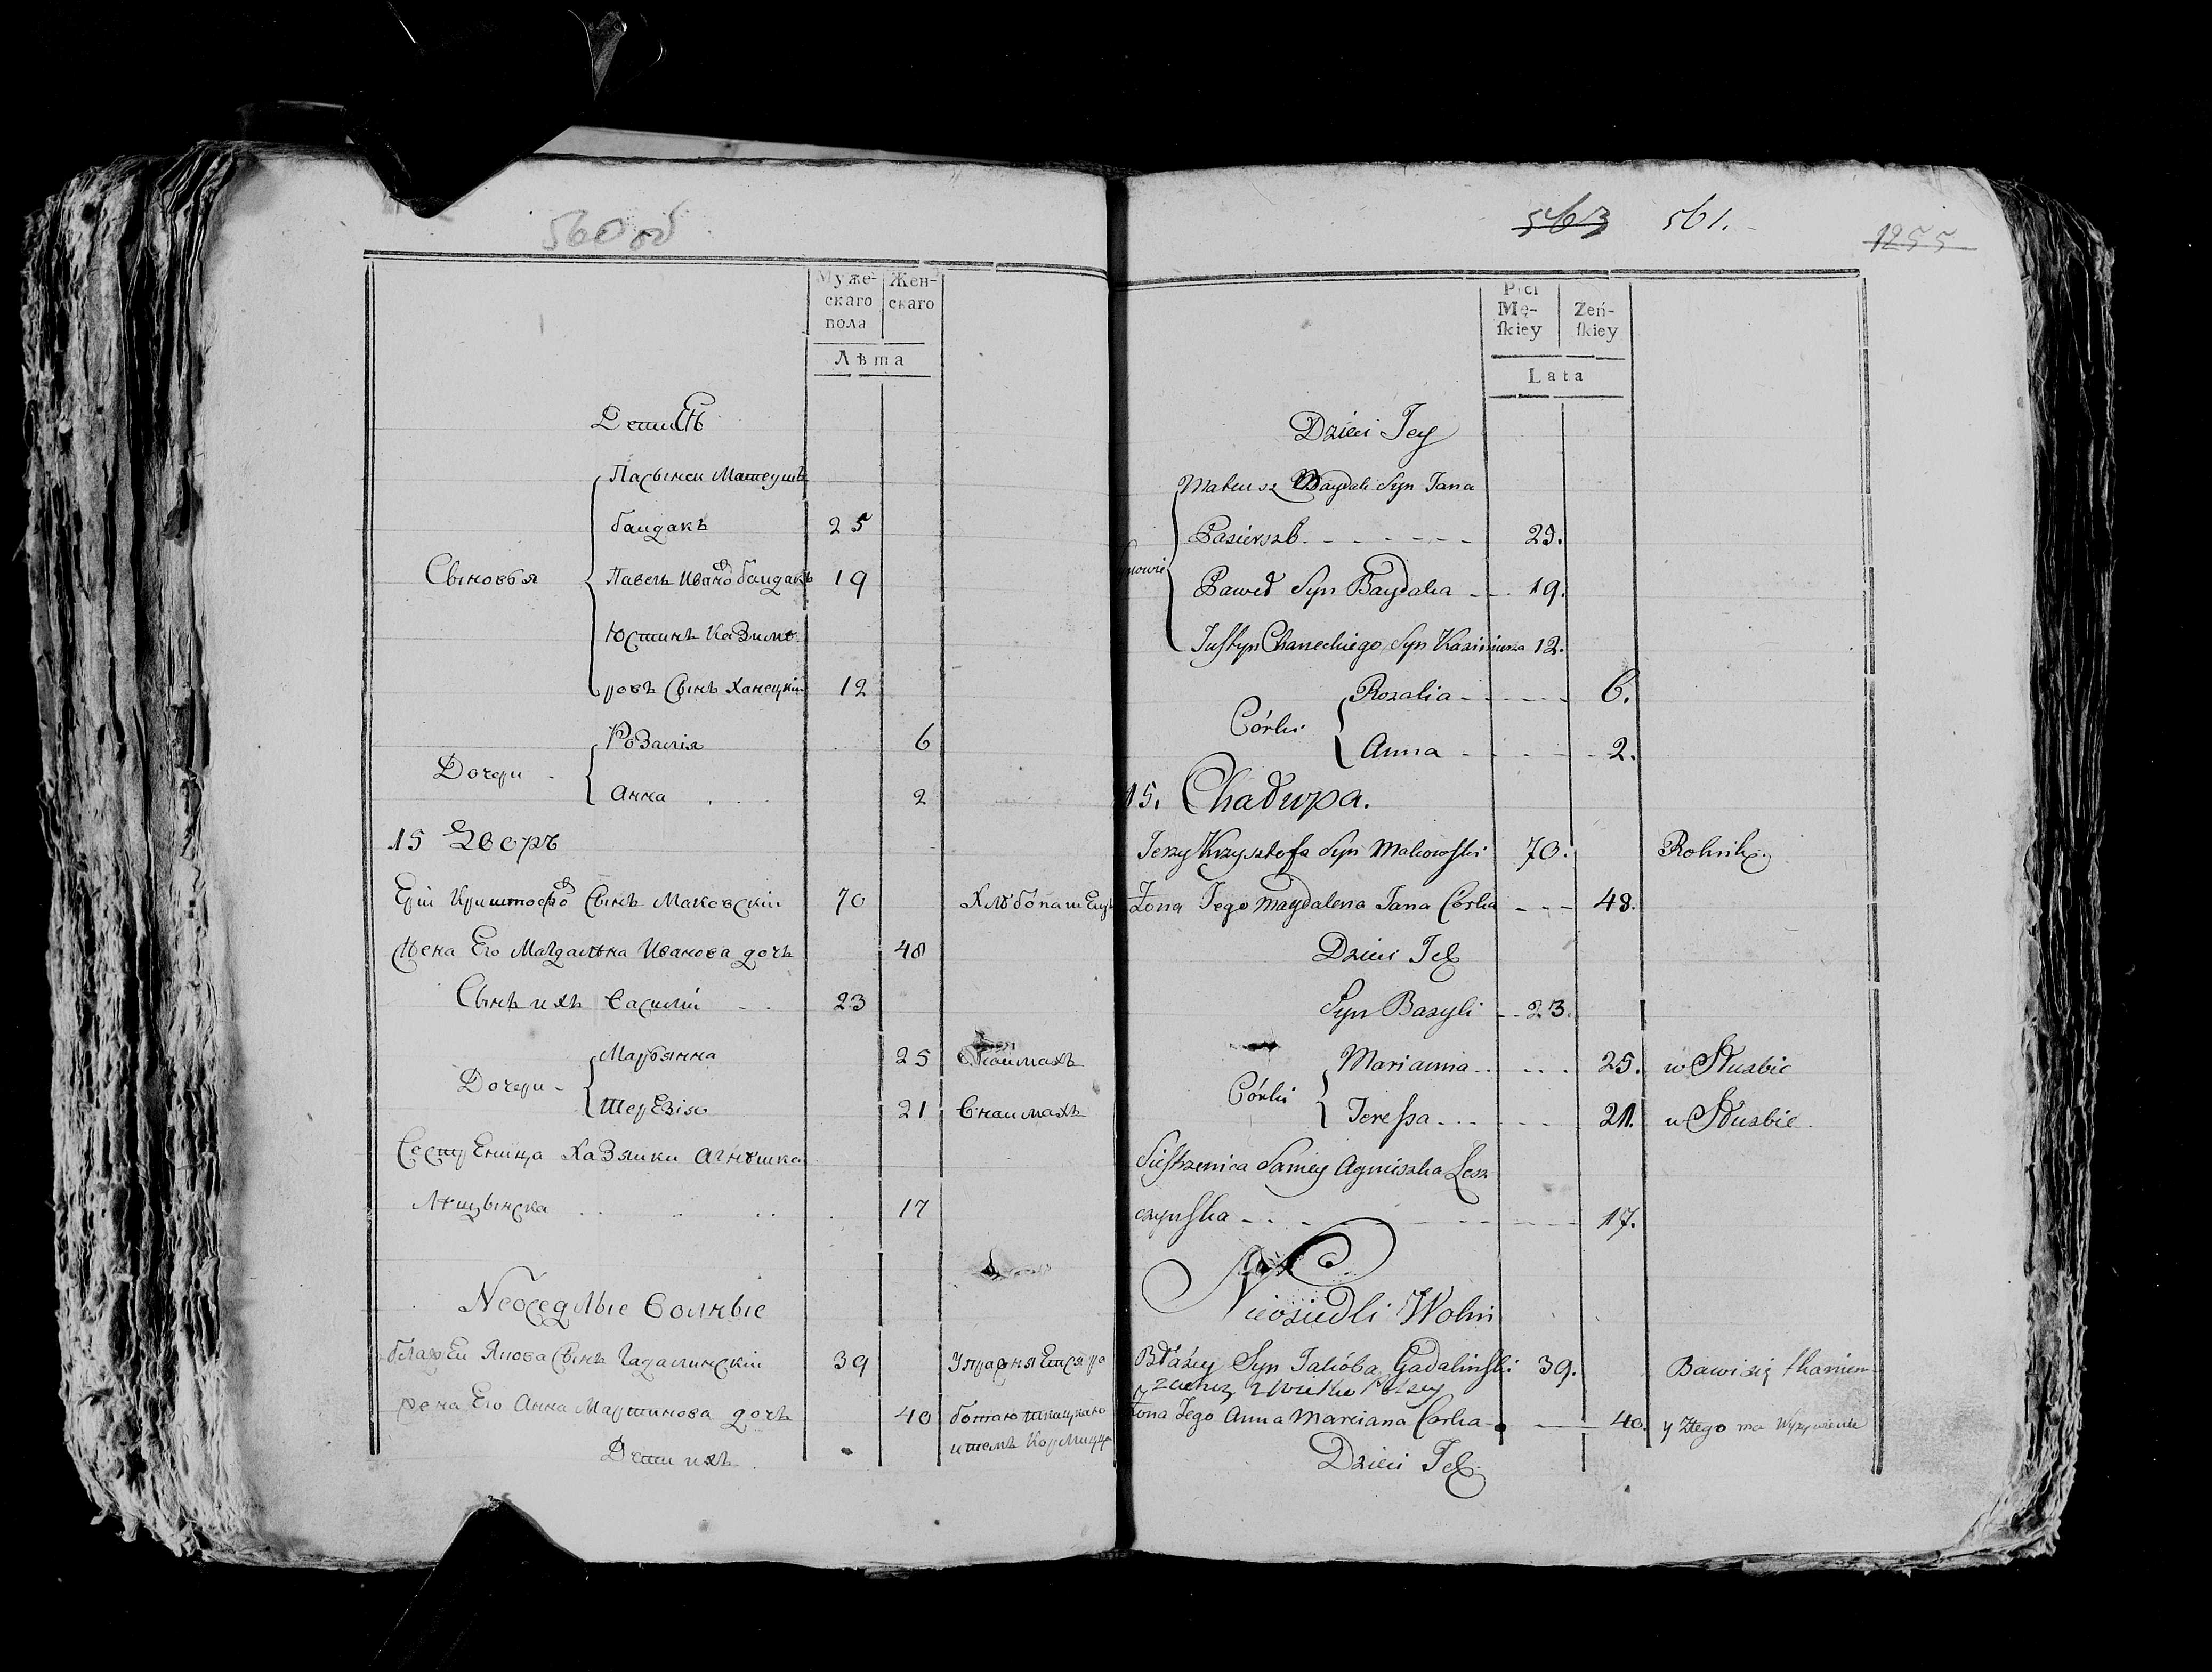 560 об
Муже-
скаго
пола
Жен-
скаго
Лѣта
Дети Еѣ
Пасынок Матеушъ
баидакъ 25
Сыновья Павелъ Ивано баидакъ 19
Юстинъ Казимѣ
ровъ Сынъ Ханецкiи 12
Розалiя 6
Дочери
Анна 2
15 Дворъ
Ерiи Криштофо Сынъ Маковскiи 70 Хлѣбопашецъ
Жена Его Магдалѣна Иванова дочь 48
Сынъ ихъ Василiи 23
Марьянна 25 Внаимахъ
Дочери
Терезiя 21 Внаимахъ
Сестреница Хазяики Агнѣшка
Лѣщынска 17
Неоседлые Волные
Блажеи Якова Сынъ Гадалинскiи 39 Упражняется ра
жена Его Анна Мартинова дочь 40 ботою ткацкою
Дети ихъ
563 561.
1255
Płci
Mę-
ſkiey
Zeń-
ſkiey
Lata
Dzieci Jey
Mateusz Baydak Syn Jana
Pasierzb 25.
Paweł Syn Baydaka 19.
Juſtyn Chaneckiego Syn Kazimierza 12.
Rozalia 6.
Córki
Anna 2.
15. Chałupa.
Jerzy Krzysztofa Syn Makowſki 70. Rolnik.
Żona Jego Magdalena Jana Córka 48.
Dzieci Ich
Syn Bazyli 23.
Marianna 25. w Służbie
Córki
Tereſsa 21. w Służbie.
Sieſtrzenica Samey Agniszka Lesz
czynſka 17.
Nieosiedli Wolni
Błażey Syn Jakóba Gadalinſki 39. Bawi się tkaniem
Żona Jego Anna Marciana Corka 40. y ztego ma wyżywienie
Dzieci Ich